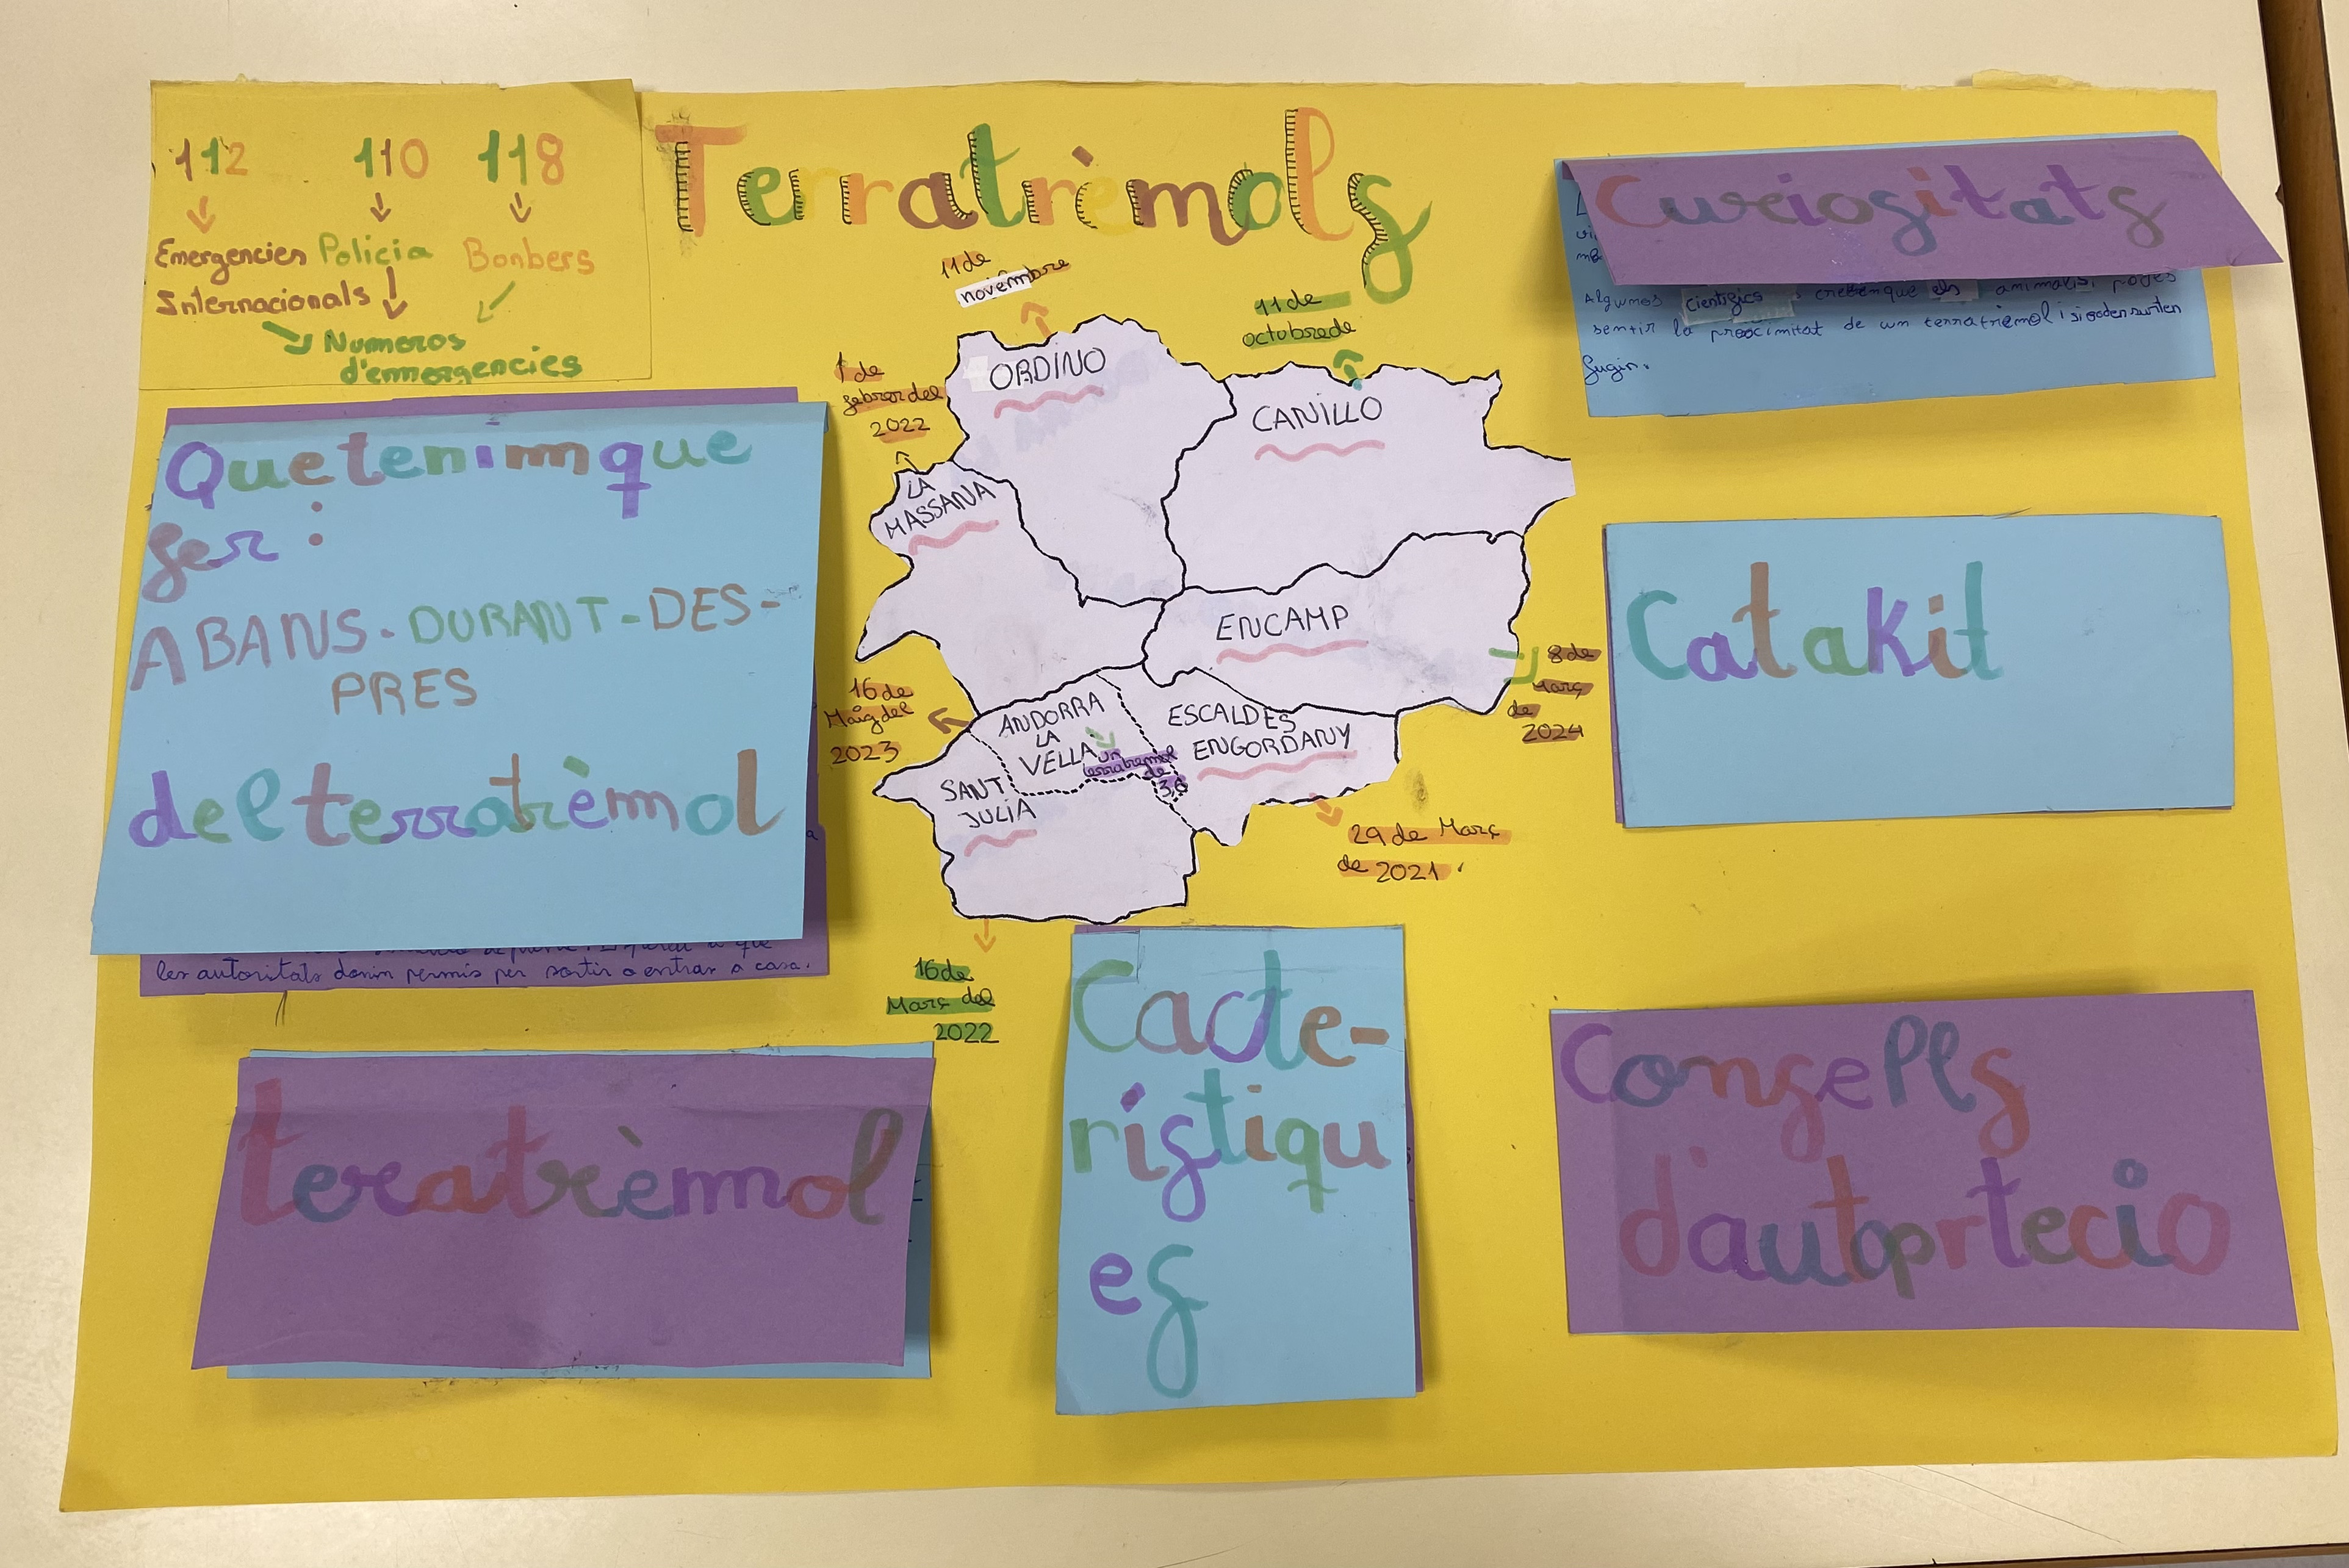 Terratrèmols
112 110 118
Emergencies Policia Bonbers
Internacionals
Numeros
d'enmergencies
Curiositats
Algunos cientigics creeenque els animals, podes
sentir la proximitat de un terratrèmol i si poden surten
fugir.
Que tenim que
fer :
ABANS - DURANT - DES-
PRES
del terratrèmol
les autoritats donin permis per sortir o entrar a casa.
11 de
novembre
11 de
octubre de
1 de
febrer del
2022
ORDINO
CANILLO
LA
MASSANA
ENCAMP
8 de
Març
de
2024
16 de
Maig del
2023
ANDORRA
LA
VELLA
un
terratremol
de
3,6
ESCALDES
ENGORDANY
SANT
JULIA
29 de Març
de 2021
16 de
Març del
2022
Catakit
teratrèmol
Cacte-
rístiqu
es
Consells
d'autoprtecio